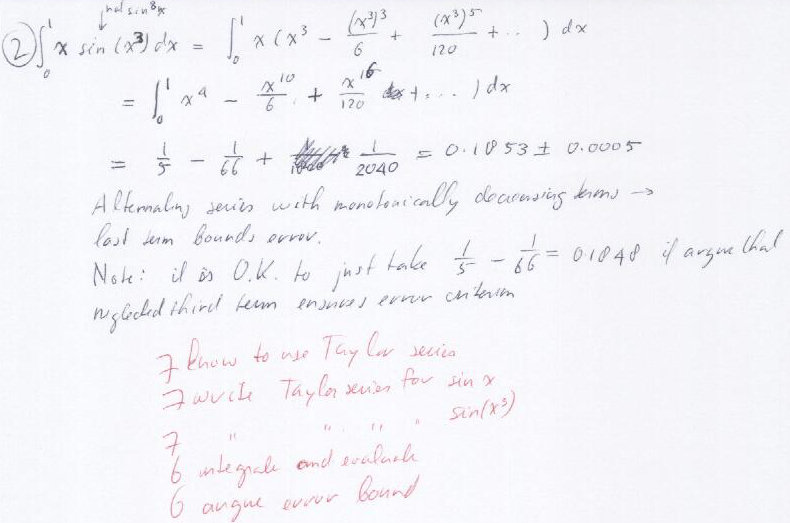 not sin³x
② ∫₀¹ x sin (x³) dx = ∫₀¹ x (x³ - (x³)³/6 + (x³)⁵/120 + .. ) dx
= ∫₀¹ x⁴ - x¹⁰/6 + x¹⁶/120 + ... ) dx
= 1/5 - 1/66 + 1/2040 = 0.1853 ± 0.0005
Alternating series with monotonically decreasing terms →
last term bounds error.
Note: it is O.K. to just take 1/5 - 1/66 = 0.1848 if argue that
neglected third term ensures error criterion
7 know to use Taylor series
7 write Taylor series for sin x
7 " " " " sin(x³)
6 integrate and evaluate
6 argue error bound